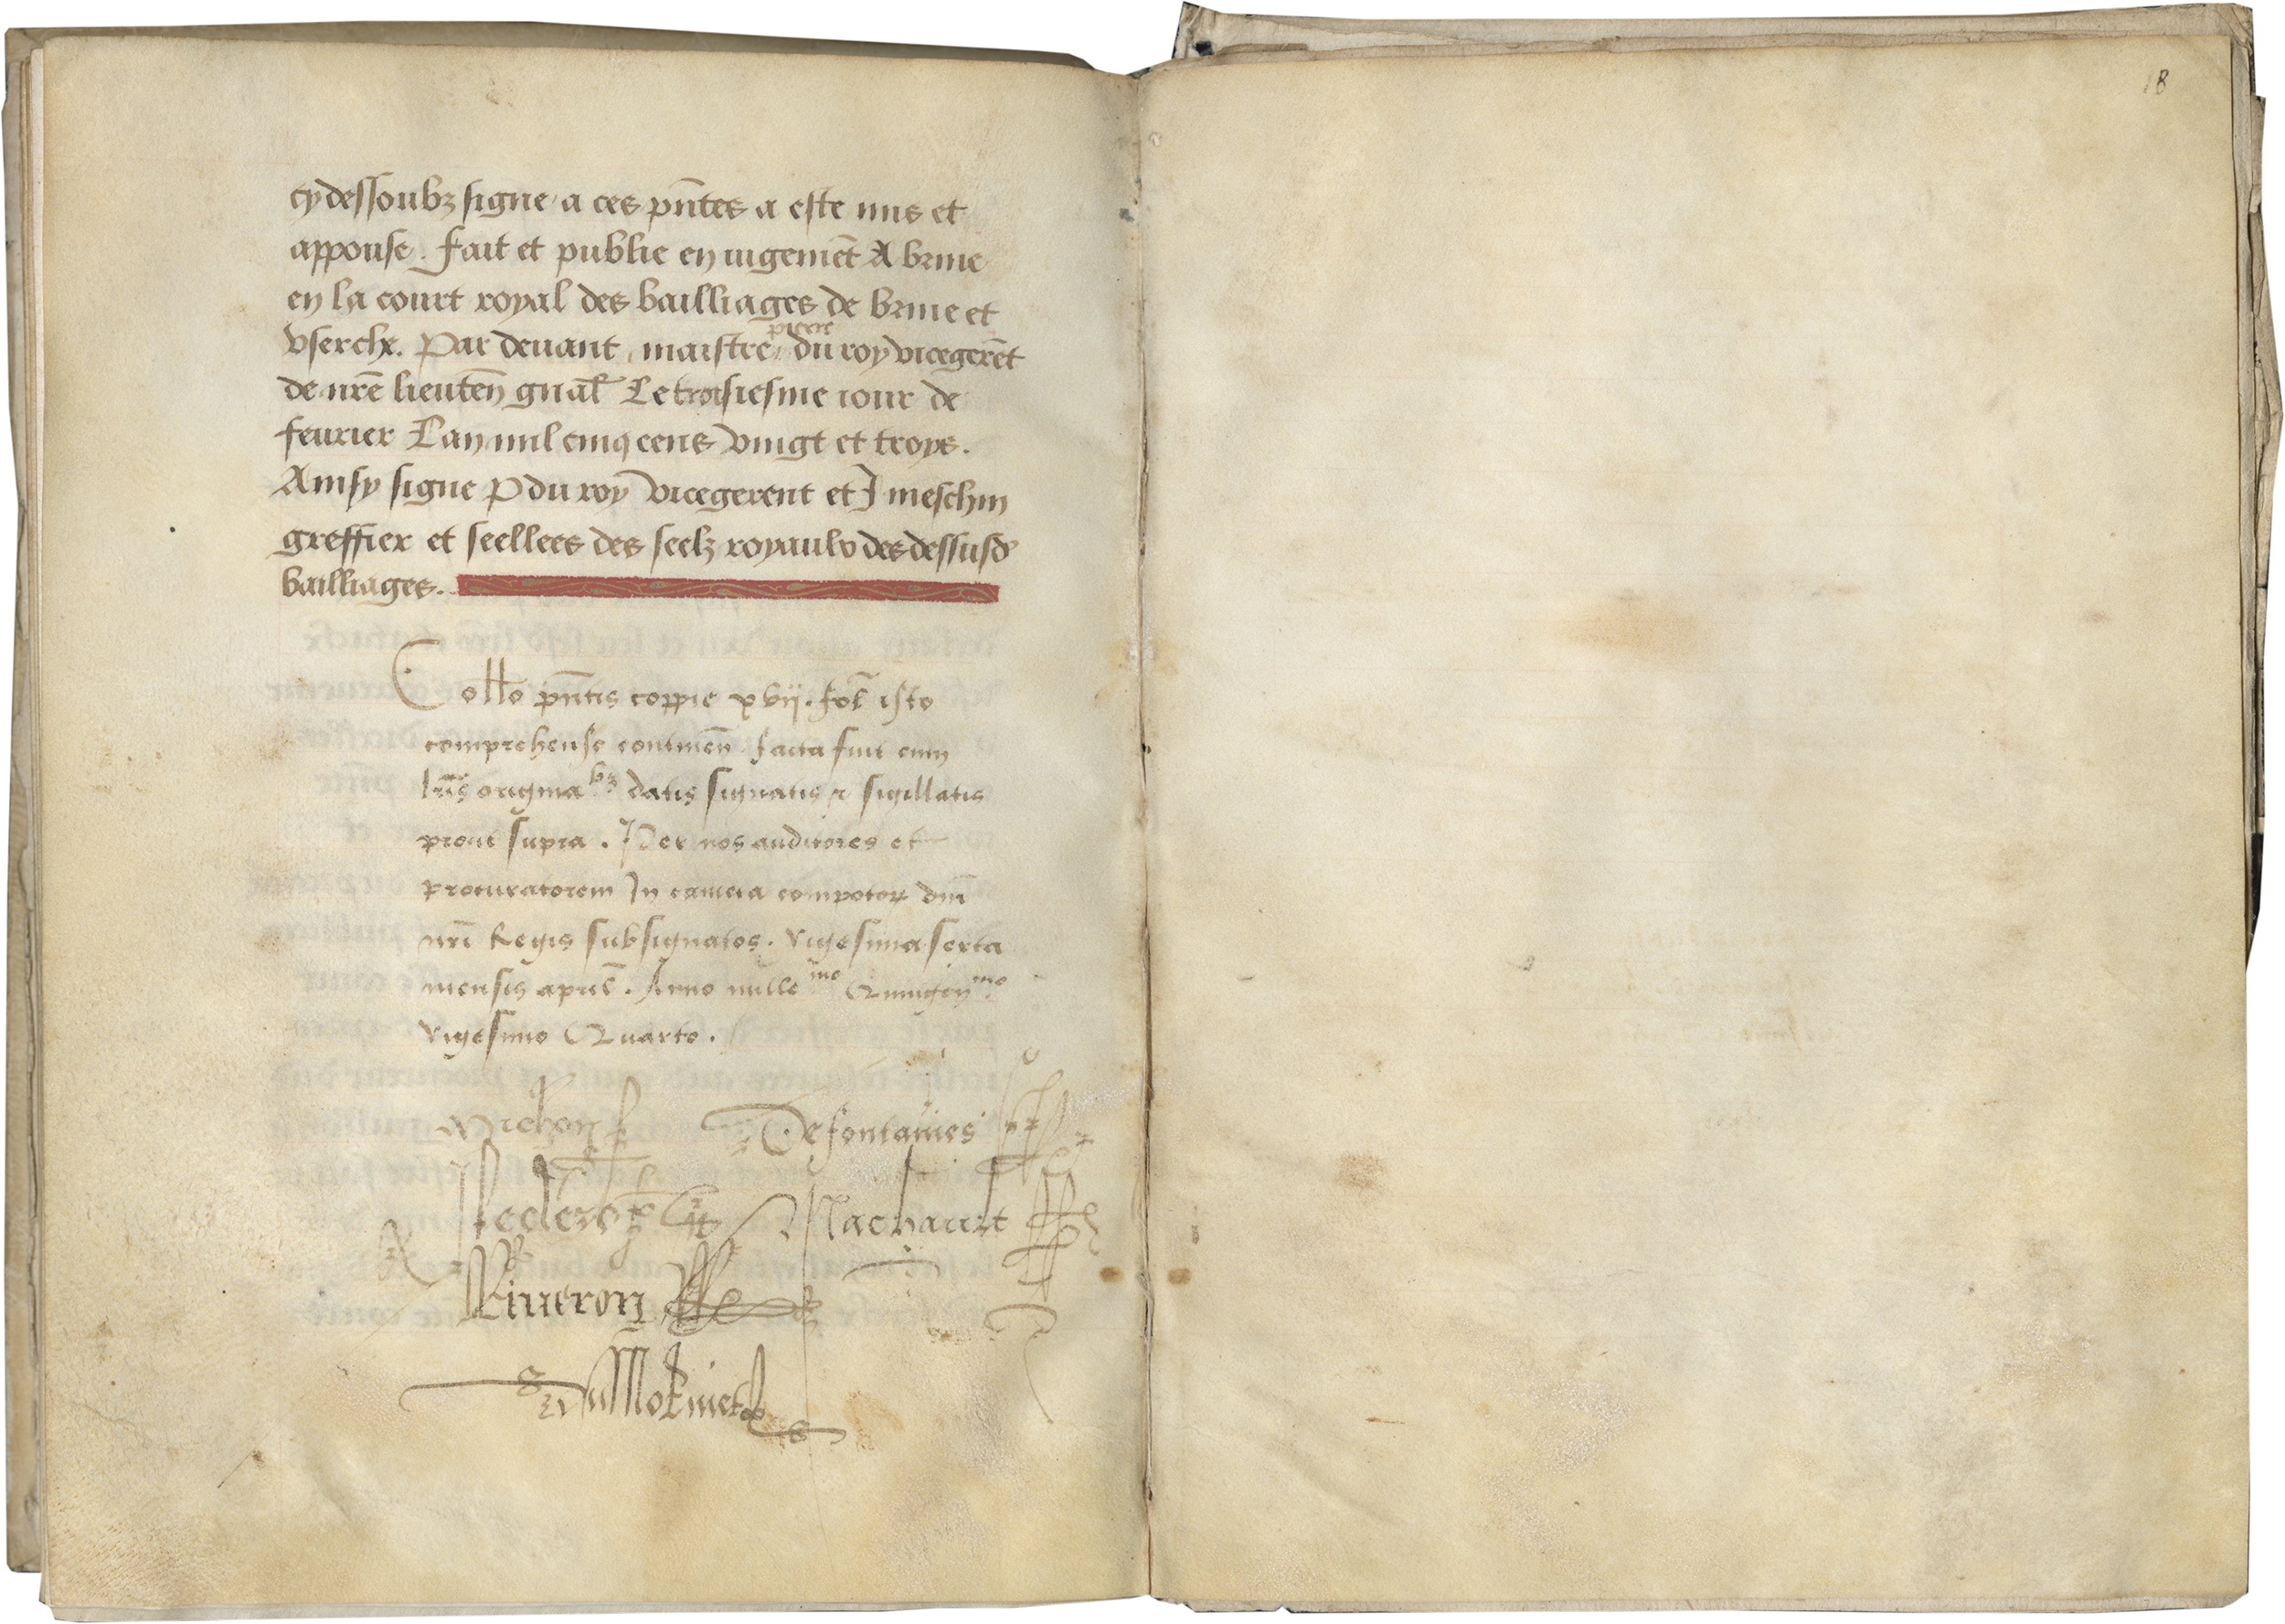 cy dessoubz signe a ces pn̄tes a este mis et
appouse. Fait et publie en iugemēt A briue
en la court royal des bailliages de briue et
vserche. Par deuant maistre pierre du roy vicegerēt
de nrē lieuten̄ gnal̄ Le troisiesme iour de
feurier Lan mil cinq cens vingt et troys.
Ainsy signe P du roy vicegerent et J meschin
greffier et seellees des seelz royaulx des dessusd
bailliages.
Collo pn̄tis coppie xvij. fol̄ isto
comprehense continen̄ facta fuit cum
lrīs originabz datis signatis et sigillatis
prout supra. Per nos auditores et
procuratorem In camera compotoꝝ dnī
nrī Regis subsignatos. vigesima sexta
mensis april̄. Anno millemo Quingenmo
vigesimo Quarto.
Defontaines
Leclerc Machault
Viueron
Du Molinet
18